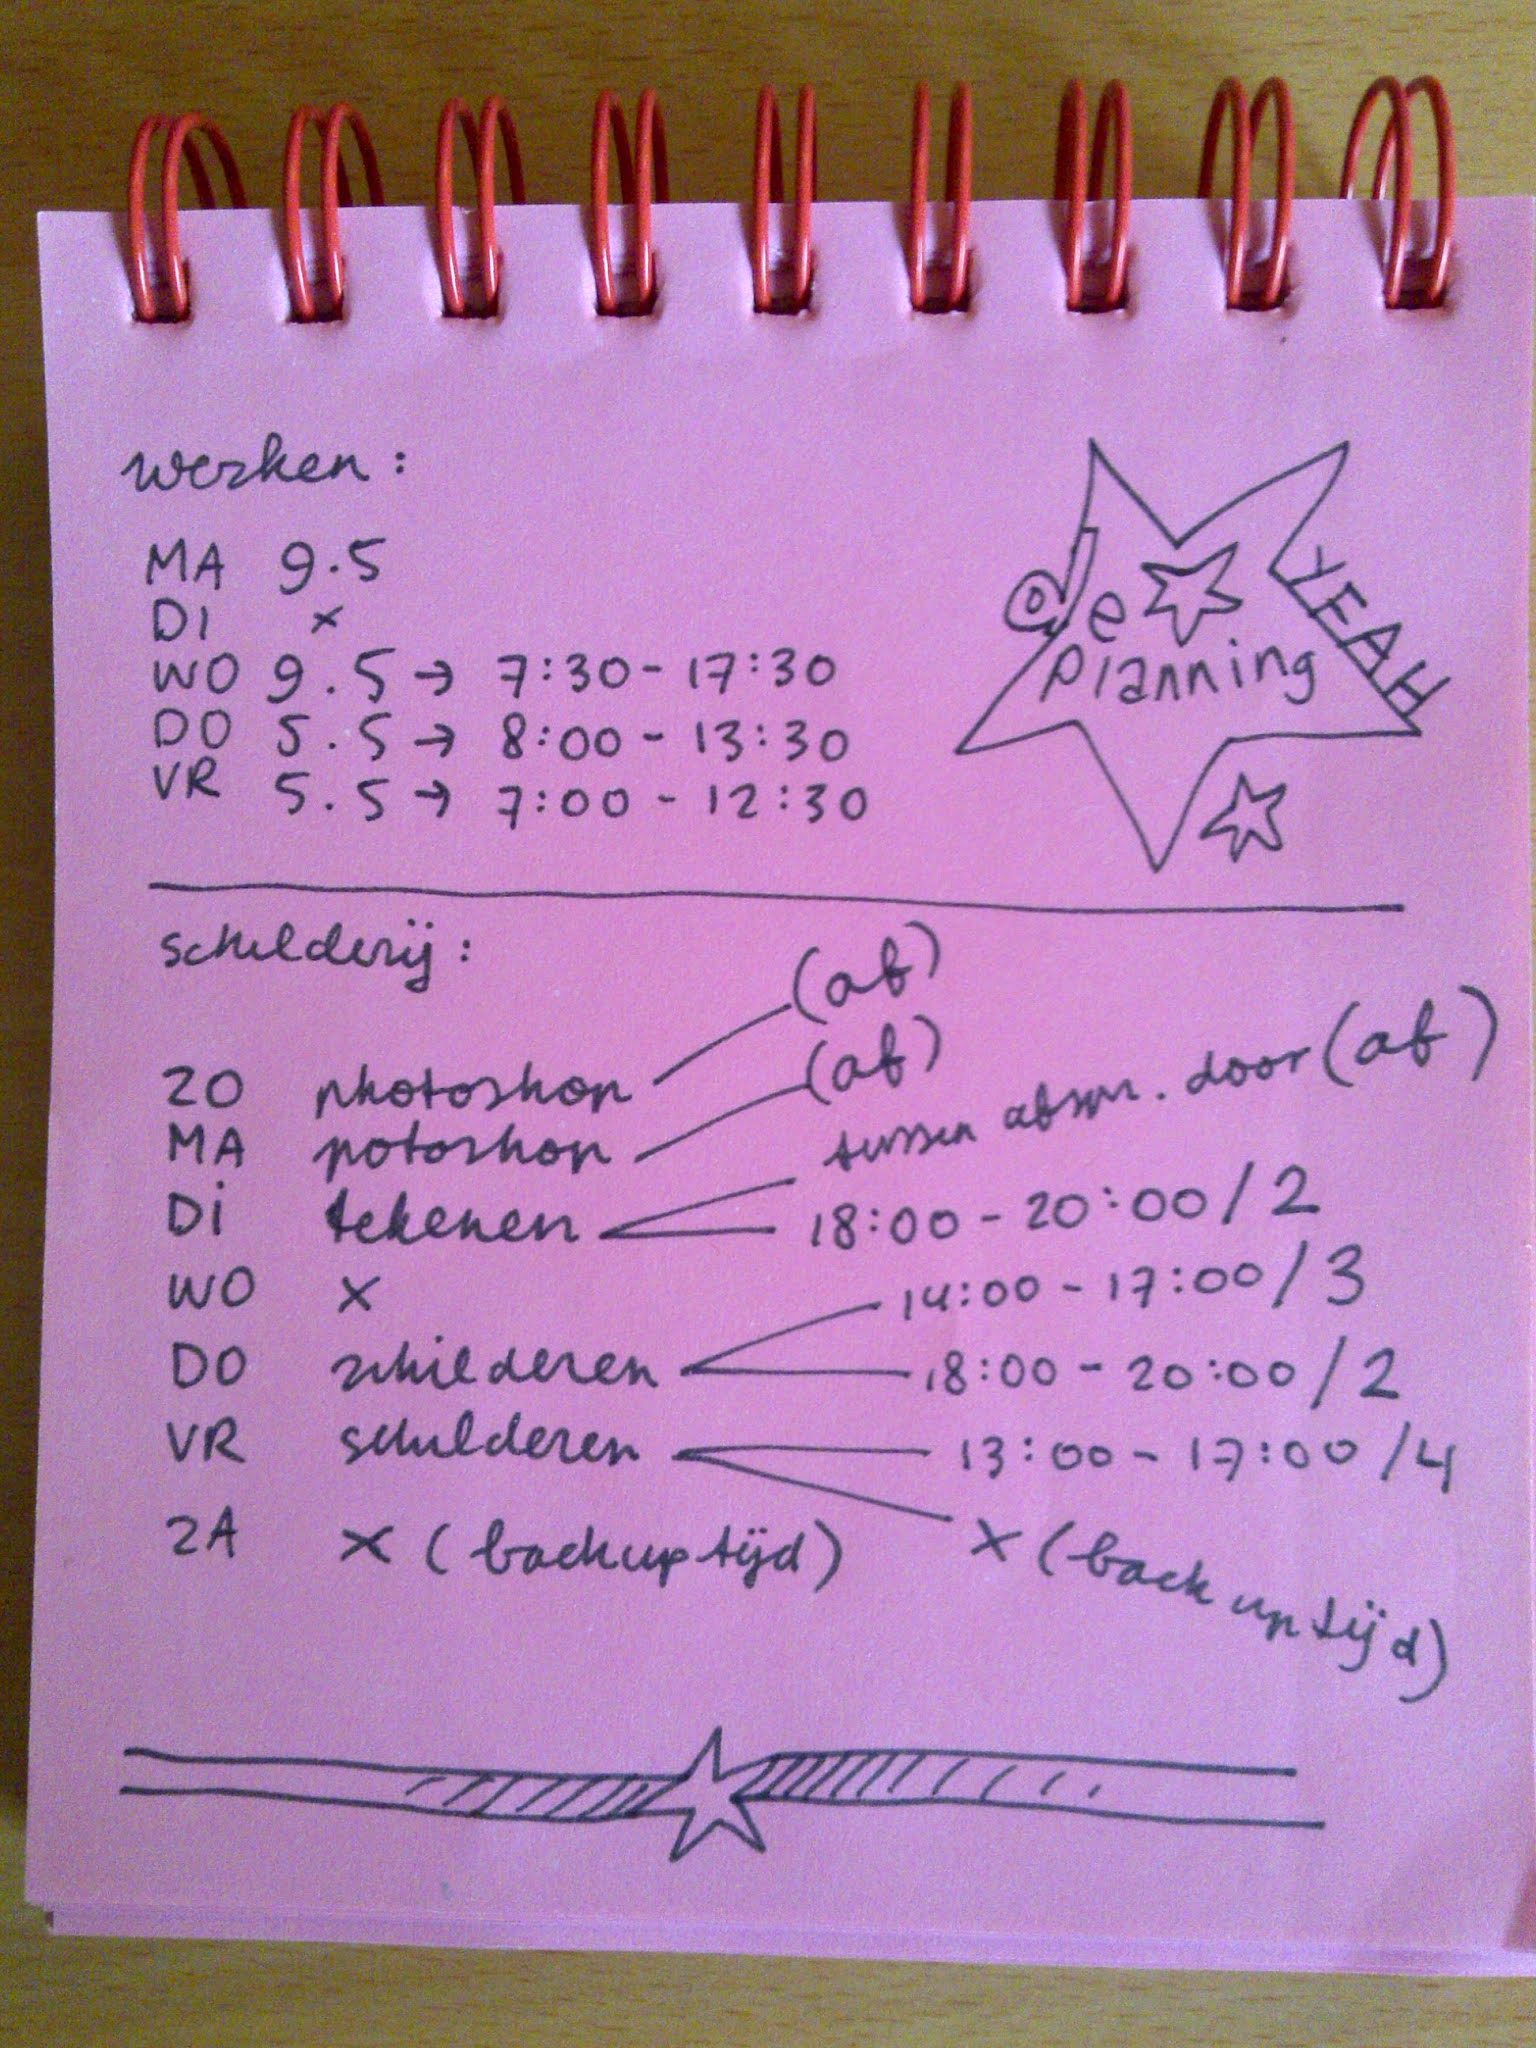 werken:
MA 9.5
DI x
WO 9.5 → 7:30 - 17:30
DO 5.5 → 8:00 - 13:30
VR 5.5 → 7:00 - 12:30
de
planning
YEAH
schilderij:
ZO photoshop (af)
MA potoshop (af)
Di tekenen tussen afspr. door (af)
18:00 - 20:00 / 2
WO x
DO schilderen 14:00 - 17:00 / 3
18:00 - 20:00 / 2
VR schilderen 13:00 - 17:00 / 4
x (back up tijd)
ZA x (backup tijd)